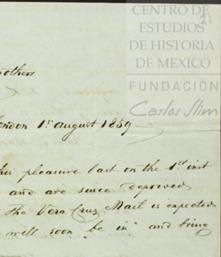 CENTRO DE
ESTUDIOS
DE HISTORIA
DE MEXICO
FUNDACIÓN
Carlos Slim
rothers
ondon 1st August 1859
pleasure last on the 1st inst
and are since deprived
The Vera Cruz Mail is expected
well soon be in and bring